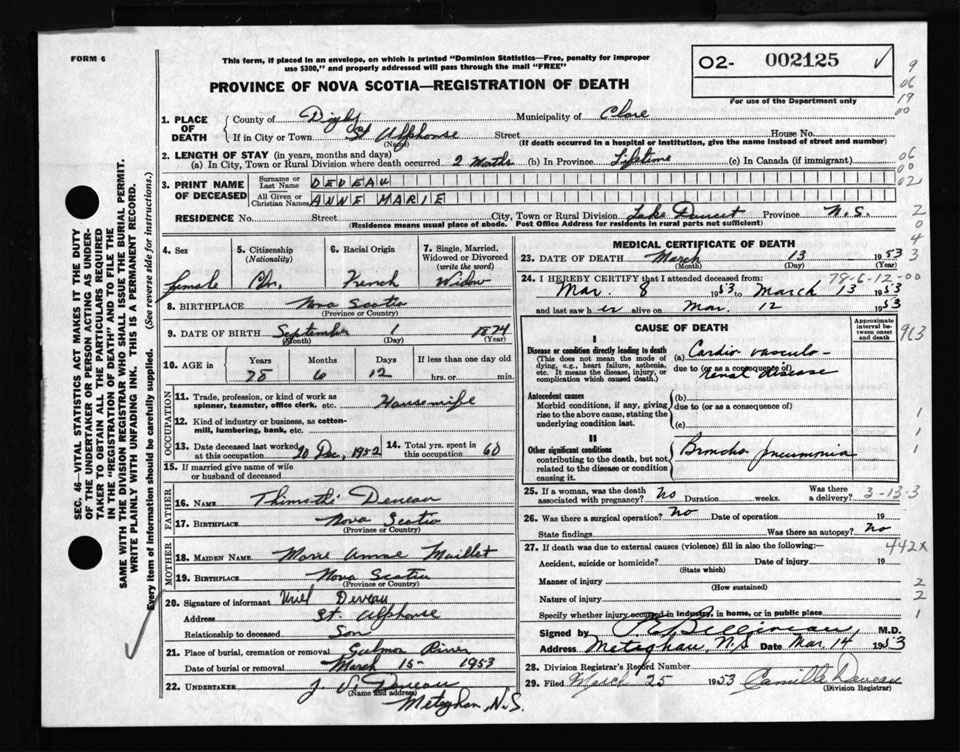 FORM 6
This form, if placed in an envelope, on which is printed "Dominion Statistics—Free, penalty for improper
use $300," and properly addressed will pass through the mail "FREE"
O2- 002125 ✓
For use of the Department only
PROVINCE OF NOVA SCOTIA—REGISTRATION OF DEATH
1. PLACE OF DEATH
County of Digby Municipality of Clare
If in City or Town St Alphonse Street House No.
(Name) (If death occurred in a hospital or institution, give the name instead of street and number)
2. LENGTH OF STAY (in years, months and days)
(a) In City, Town or Rural Division where death occurred 2 Months (b) In Province Lifetime (c) In Canada (if immigrant)
3. PRINT NAME OF DECEASED
Surname or Last Name DEVEAU
All Given or Christian Names ANNE MARIE
RESIDENCE No. Street City, Town or Rural Division Lake Doucet Province N.S.
(Residence means usual place of abode. Post Office Address for residents in rural parts not sufficient)
4. Sex
female
5. Citizenship
(Nationality)
Cdn.
6. Racial Origin
French
7. Single, Married,
Widowed or Divorced
(write the word)
Widow
8. BIRTHPLACE Nova Scotia
(Province or Country)
9. DATE OF BIRTH September 1 1874
(Month) (Day) (Year)
10. AGE in Years Months Days If less than one day old
78 6 12 hrs. or min.
OCCUPATION
11. Trade, profession, or kind of work as
spinner, teamster, office clerk, etc. Housewife
12. Kind of industry or business, as cotton-
mill, lumbering, bank, etc.
13. Date deceased last worked
at this occupation 20 Dec, 1952
14. Total yrs. spent in
this occupation 60
15. If married give name of wife
or husband of deceased
FATHER
16. NAME Thimothi Deveau
17. BIRTHPLACE Nova Scotia
(Province or Country)
MOTHER
18. MAIDEN NAME Marie Annie Maillet
19. BIRTHPLACE Nova Scotia
(Province or Country)
20. Signature of informant Uriel Deveau
Address St. Alphonse
Relationship to deceased Son
21. Place of burial, cremation or removal Salmon River
Date of burial or removal March 15- 1953
22. UNDERTAKER J. V. Deveau
(Name and address)
Meteghan, N.S.
MEDICAL CERTIFICATE OF DEATH
23. DATE OF DEATH March 13 1953
(Month) (Day) (Year)
24. I HEREBY CERTIFY that I attended deceased from: 78-6-12-00
Mar. 8 1953 to March 13 1953
and last saw her alive on Mar. 12 1953
CAUSE OF DEATH
Approximate interval between onset and death
I
Disease or condition directly leading to death
(This does not mean the mode of
dying, e.g., heart failure, asthenia,
etc. It means the disease, injury, or
complication which caused death.)
(a) Cardio vasculo-
due to (or as a consequence of)
renal disease
Antecedent causes
Morbid conditions, if any, giving
rise to the above cause, stating the
underlying condition last.
(b)
due to (or as a consequence of)
(c)
II
Other significant conditions
contributing to the death, but not
related to the disease or condition
causing it.
Broncho pneumonia
25. If a woman, was the death
associated with pregnancy? No Duration weeks. Was there
a delivery? 3-13-3
26. Was there a surgical operation? No Date of operation 19
State findings Was there an autopsy? No
27. If death was due to external causes (violence) fill in also the following:—
Accident, suicide or homicide? Date of injury 19
(State which)
Manner of injury
(How sustained)
Nature of injury
Specify whether injury occurred in industry, in home, or in public place
Signed by P. E. Belliveau M.D.
Address Meteghan, N.S Date Mar. 14 1953
28. Division Registrar's Record Number
29. Filed March 25 1953 Camille Deveau
(Division Registrar)
9
06
19
00
06
00
02
2
0
4
3
913
1
1
1
442X
2
2
1
SEC. 46—VITAL STATISTICS ACT MAKES IT THE DUTY
OF THE UNDERTAKER OR PERSON ACTING AS UNDER-
TAKER TO OBTAIN ALL THE PARTICULARS REQUIRED
IN THE "REGISTRATION OF DEATH" AND TO FILE THE
SAME WITH THE DIVISION REGISTRAR WHO SHALL ISSUE THE BURIAL PERMIT.
WRITE PLAINLY WITH UNFADING INK. THIS IS A PERMANENT RECORD.
Every item of information should be carefully supplied. (See reverse side for instructions.)